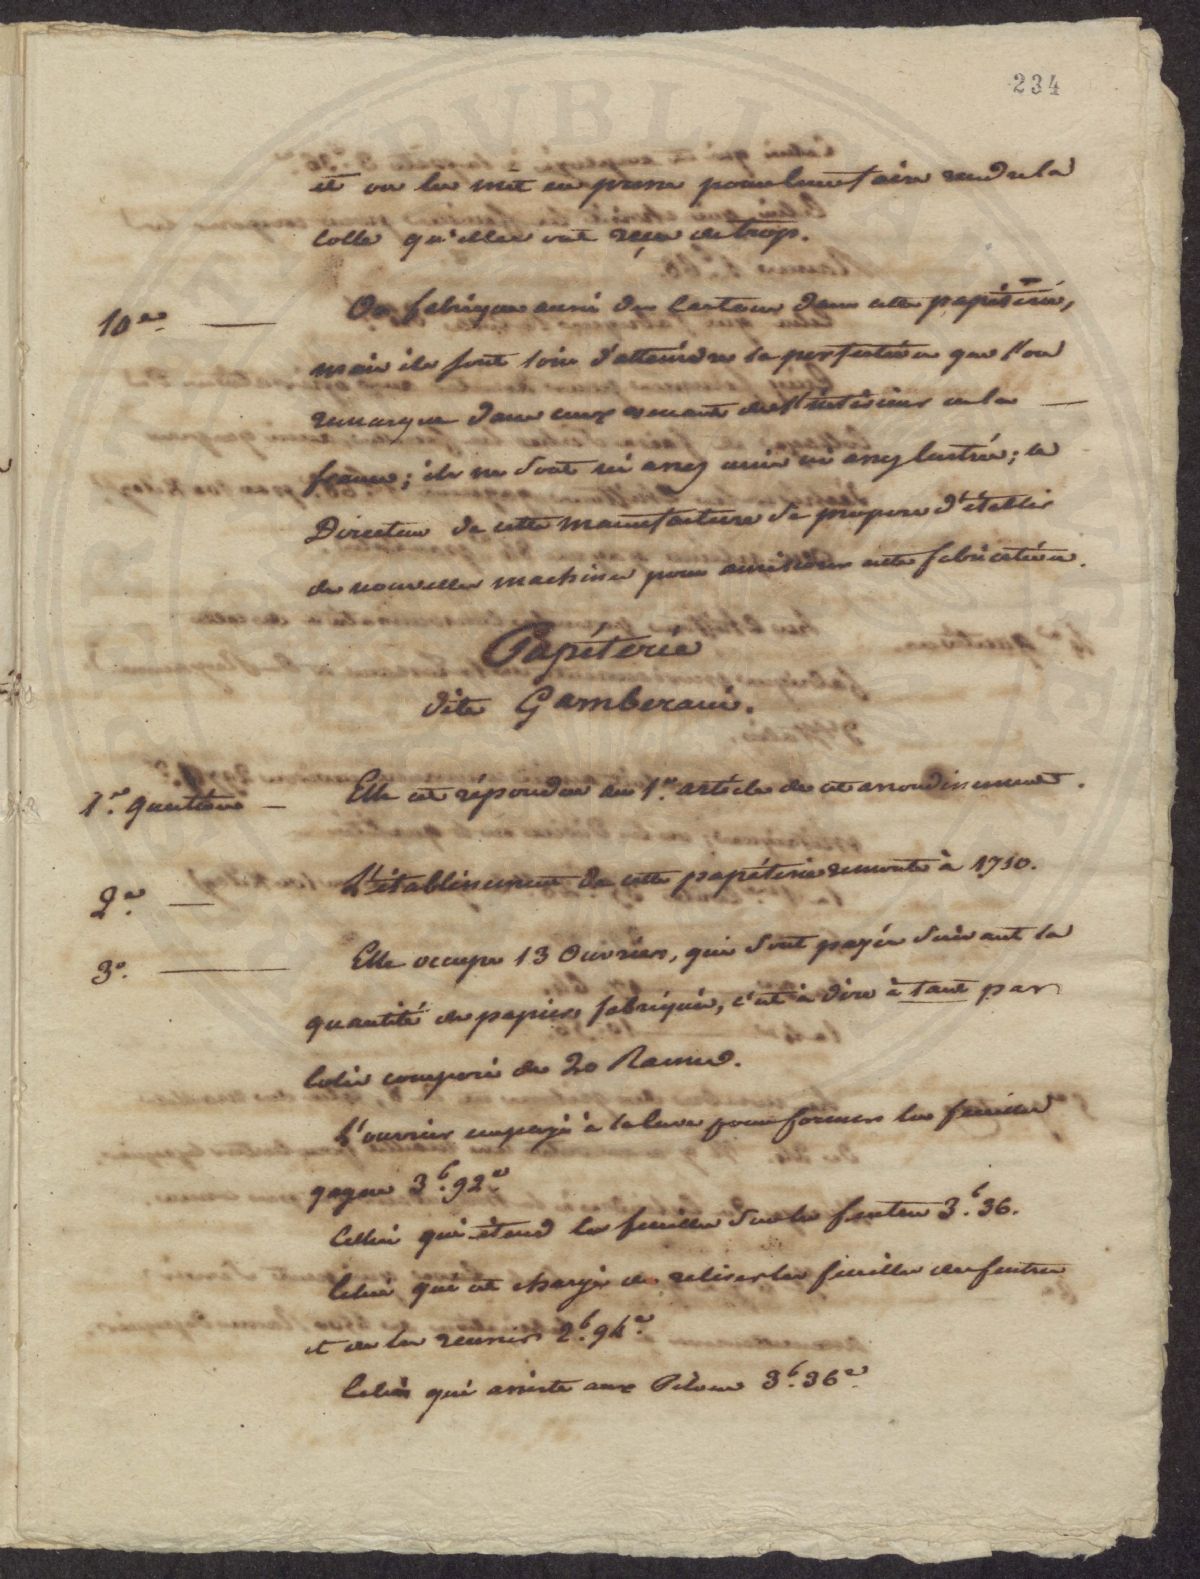 234
et on les met en presse pour leur faire rendre la
colle qu'elles ont reçu de trop.
10e. — On fabrique aussi des Cartons dans cette papéterie,
mais ils sont loin d'atteindre la perfection que l'on
remarque dans ceux venant de l'intérieur de la —
france; ils ne sont ni assez unis ni assez lustrés; le
Directeur de cette manufacture se propose d'établir
de nouvelles machines pour améliorer cette fabrication.
Papéterie
dite Gamberani.
1re question — Elle est répondue au 1er. article de cet arrondissement.
2e. — L'établissement de cette papéterie remonte à 1710.
3e. — Elle occupe 13 Ouvriers, qui sont payés suivant la
quantité de papiers fabriqués, c'est à dire à tant par
Colis composé de 20 Rames.
L'ouvrier employé à la cuve pour former les feuilles
gagne 3f. 92c.
Celui qui étend les feuilles sur les feutres 3f. 36.
Celui qui est chargé de retirer les feuilles des feutres
et de les reunir 2f. 94c.
Celui qui assiste aux Pilons 3f. 36c.